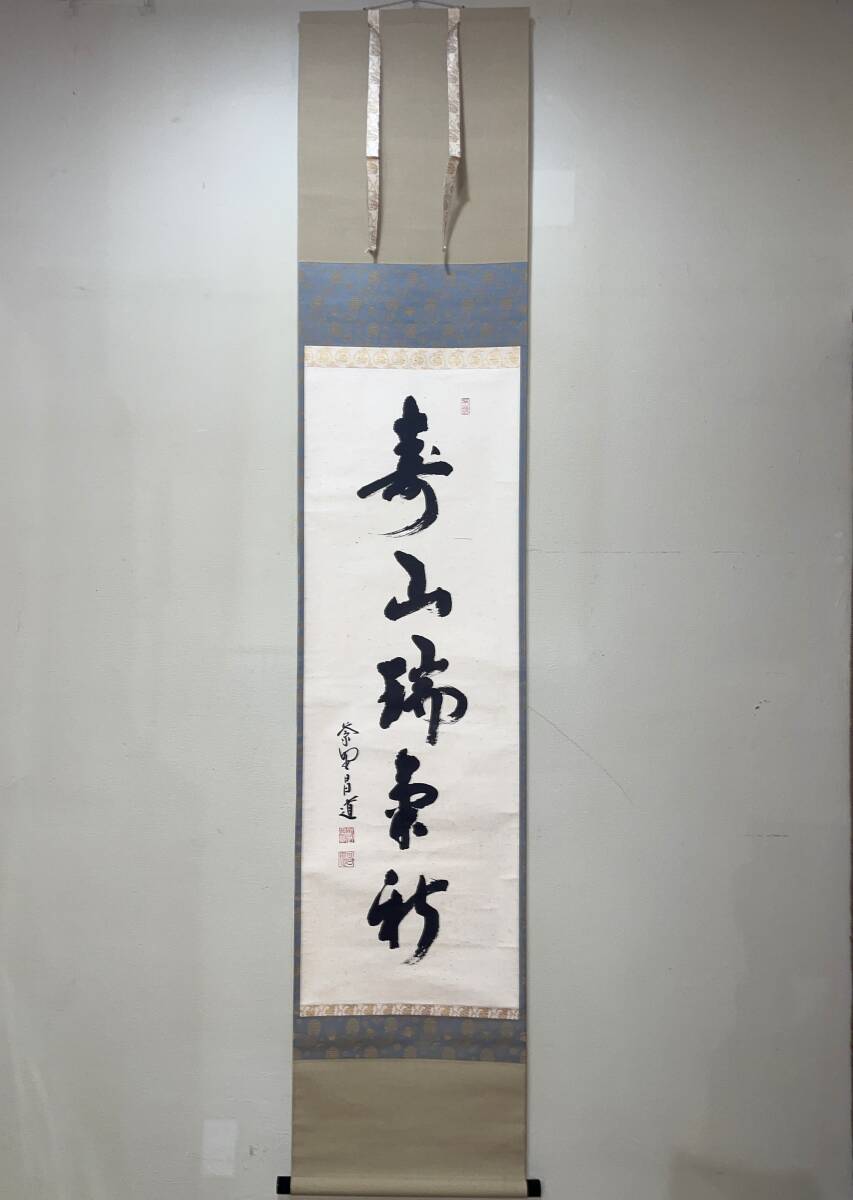 寿山瑞気新
紫野昌道